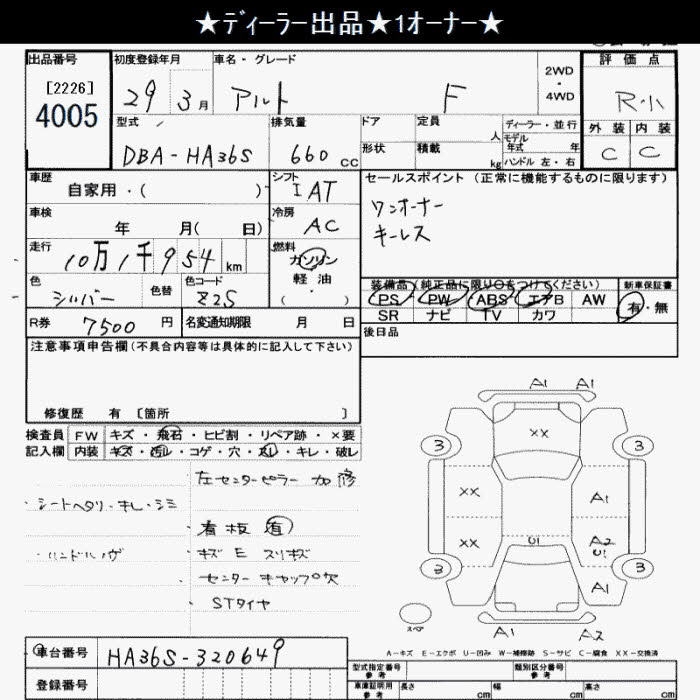 ★ディーラー出品★1オーナー★
出品番号 初度登録年月 車名・グレード 2WD・4WD 評価点
[2226] 4005 29 3月 アルト F R・小
型式 排気量 ドア 定員 人 ディーラー・並行 外装 内装
モデル年式 年
形状 積載 kg ハンドル 左・右
DBA-HA36S 660cc C C
車歴 自家用・( ) シフト IAT セールスポイント (正常に機能するものに限ります)
車検 年 月( 日) 冷房 AC ワンオーナー
キーレス
走行 10万1千954km 燃料 ガソリン 軽油 ( ・ )
色 シルバー 色替 色コード Z2S
装備品(純正品に限り○をつけください) 新車保証書
PS PW ABS エアB AW 有・無
SR ナビ TV カワ
R券 7500円 名変通知期限 月 日 後日品
注意事項申告欄(不具合内容等は具体的に記入して下さい)
修復歴 有 [箇所 ]
検査員 FW キズ・飛石・ヒビ割・リペア跡・×要
記入欄 内装 キズ・汚レ・コゲ・穴・スレ・キレ・破レ
左センターピラー 加修
・シートヘタリ・キレ・シミ
・看板 (有)
・ハンドル
・キズ E スリキズ
・センターキャップ欠
・STタイヤ
A1 A1
XX
3 3
XX A1
XX U1 A2
U1
3 3
A1
スペア
A1 A2
A-キズ E-エクボ U-凹み W-補修跡 S-サビ C-腐食 XX-交換済
車台番号 HA36S-320649
登録番号
型式指定番号 参考 類別区分番号 参考
車庫証明用 参考 長さ cm 幅 cm 高さ cm